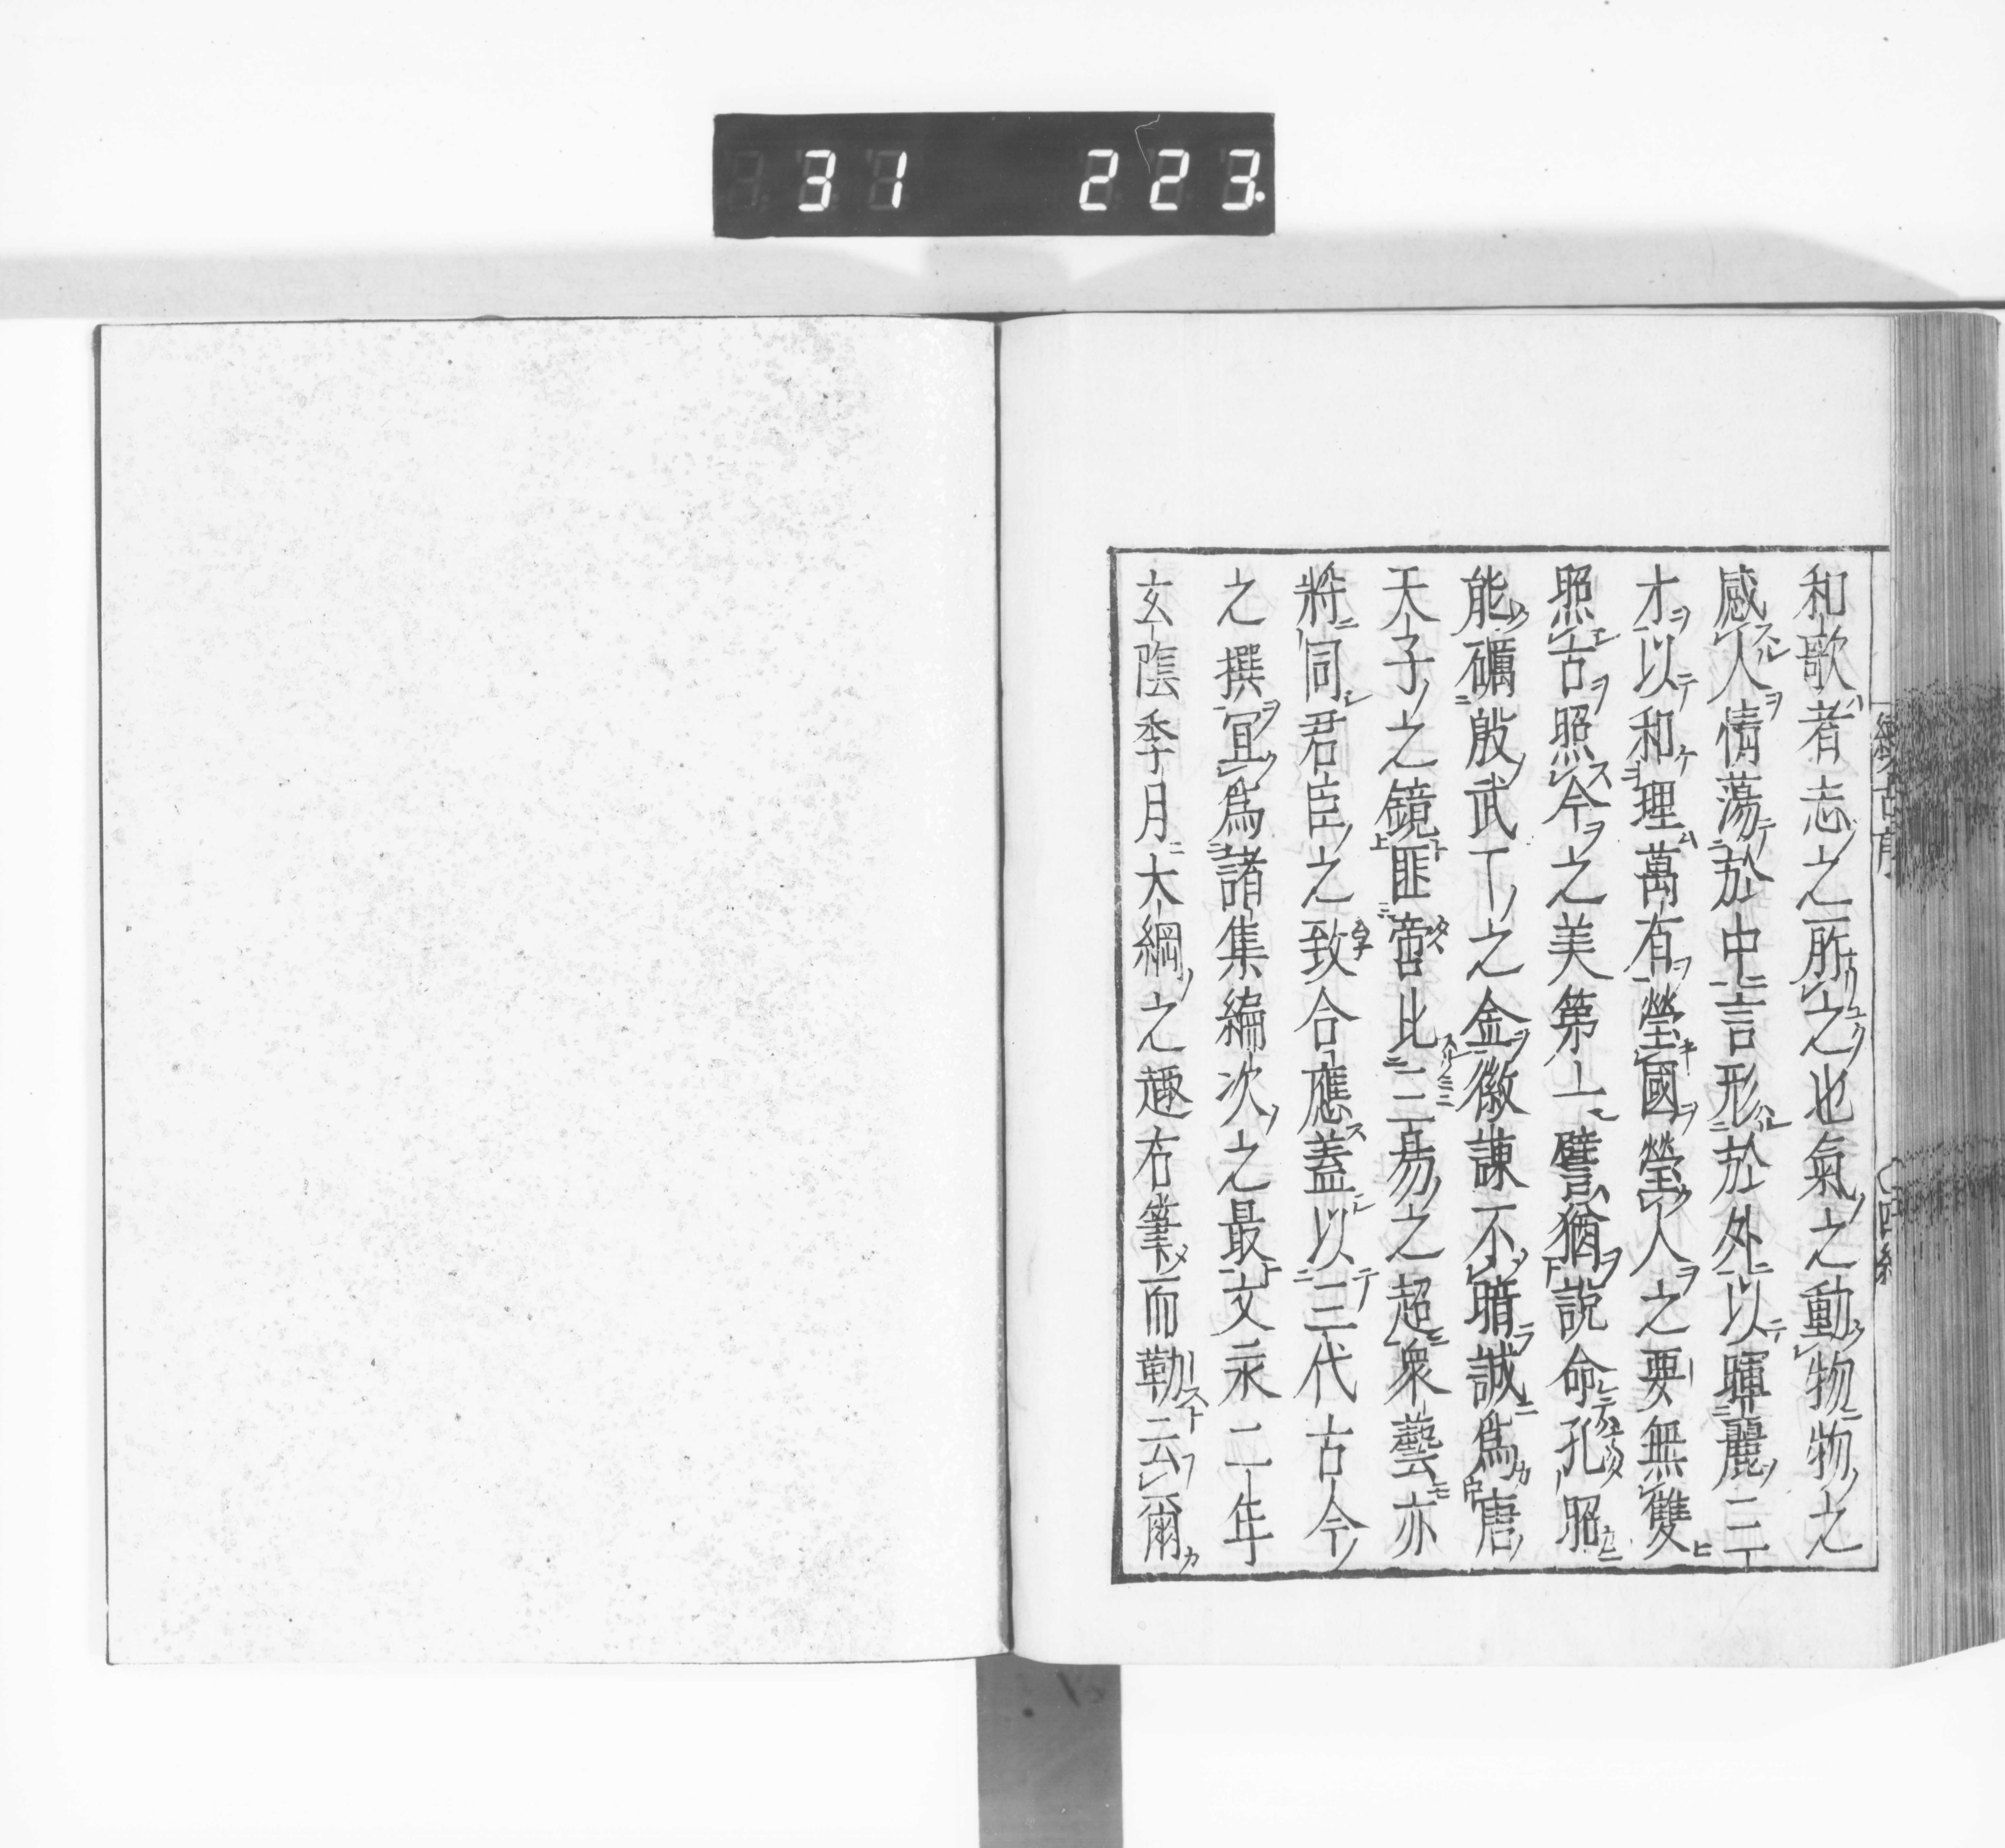 31 223.
和歌者志之所之也氣之動物物之
感人情蕩於中言形於外以暉麗三
才以和理萬有瑩國瑩人之要無雙
照古照今之美第一譬猶説命孔昭
能礪殷武丁之金徽諫不暗誠爲唐
天子之鏡匪啻比三昜之超衆藝亦
將同君臣之致合應蓋以三代古今
之撰冝爲諸集編次之最文永二年
玄隂季月大綱之趣右筆而勒云爾